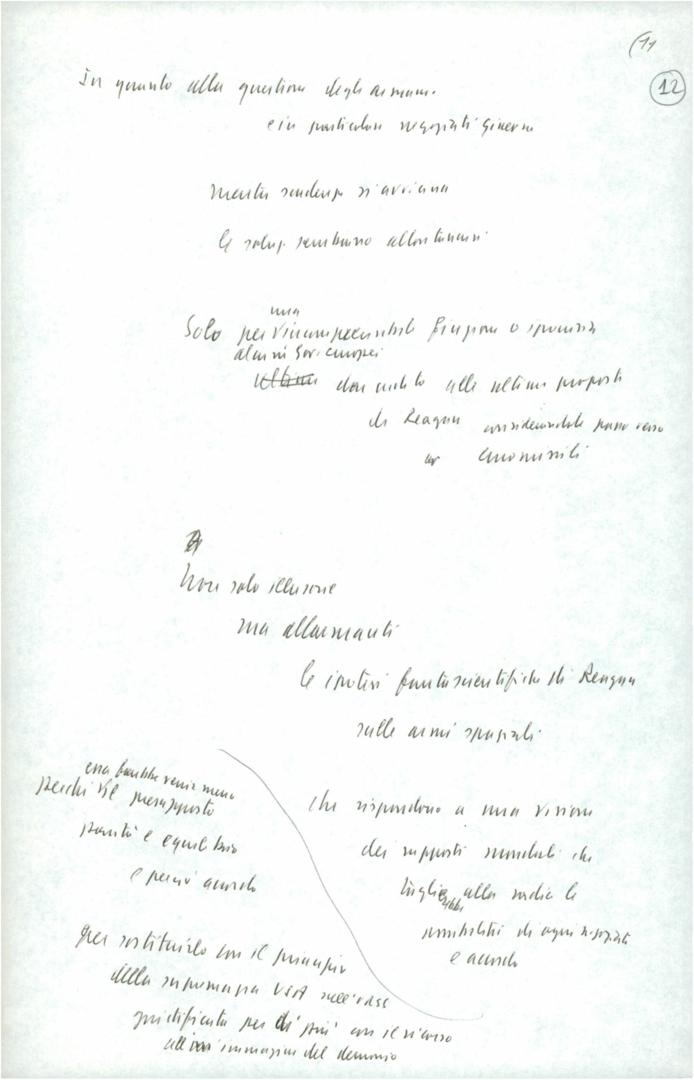 (11
12
In quanto alla questione degli armam.
e in particolare negoziati Ginevra
mentre scadenza s'avvicina
le soluz. sembrano allontanarsi
una
Solo per incomprensibile finzione o ignoranza
alcuni Gov. europei
dar credito alle ultime proposte
di Reagan considerandole passo verso
euromissili
Non solo illusorie
ma allarmanti
le ipotesi fantascientifiche di Reagan
sulle armi spaziali
che rispondono a una visione
dei rapporti mondiali che
alla radice le
possibilità di ogni negoziato
e accordo
essa farebbe venir meno
perché il presupposto
parità e equilibrio
e perciò accordo
per sostituirlo con il principio
della supremazia USA sull'URSS
giustificata per di più con il ricorso
immagini del demonio